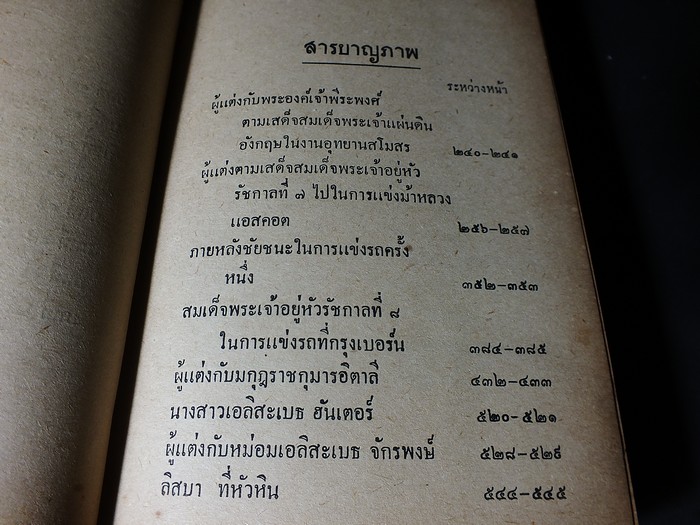 สารบาญภาพ
ระหว่างหน้า
ผู้แต่งกับพระองค์เจ้าพีระพงศ์
ตามเสด็จสมเด็จพระเจ้าแผ่นดิน
อังกฤษในงานอุทยานสโมสร ๒๔๐-๒๔๑
ผู้แต่งตามเสด็จสมเด็จพระเจ้าอยู่หัว
รัชกาลที่ ๗ ไปในการแข่งม้าหลวง
แอสคอต ๒๕๖-๒๕๗
ภายหลังชัยชนะในการแข่งรถครั้ง
หนึ่ง ๓๕๒-๓๕๓
สมเด็จพระเจ้าอยู่หัวรัชกาลที่ ๘
ในการแข่งรถที่กรุงเบอร์น ๓๘๔-๓๘๕
ผู้แต่งกับมกุฎราชกุมารอิตาลี ๔๓๒-๔๓๓
นางสาวเอลิสะเบธ ฮันเตอร์ ๕๒๐-๕๒๑
ผู้แต่งกับหม่อมเอลิสะเบธ จักรพงษ์ ๕๒๘-๕๒๙
ลิสบา ที่หัวหิน ๕๔๔-๕๔๕